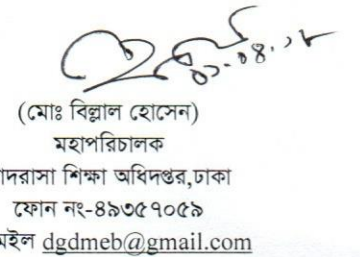 ০১.০৪.১৮
(মোঃ বিল্লাল হোসেন)
মহাপরিচালক
দরাসা শিক্ষা অধিদপ্তর,ঢাকা
ফোন নং-৪৯৩৫৭০৫৯
মইল dgdmeb@gmail.com